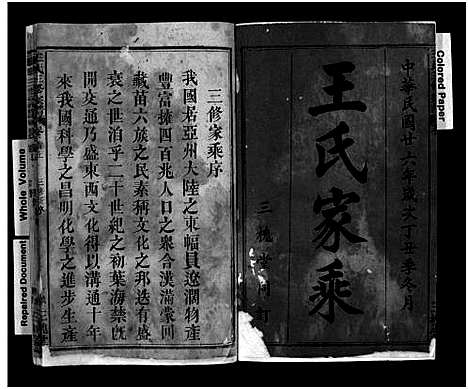 中華民國廿六年歲次丁丑季冬月
王氏家乘
三槐堂
訂
三修家乘序
我國居亞州大陸之東幅員遼濶物產
豐富擁四百兆人口之衆合漢滿蒙回
藏苗六族之民素稱文化之邦迭有盛
衰之世洎乎二十世紀之初葉海禁旣
開交通乃盛東西文化得以溝通十年
來我國科學之昌明化學之進步生產
Colored Paper
Whole Volume
Repaired Document